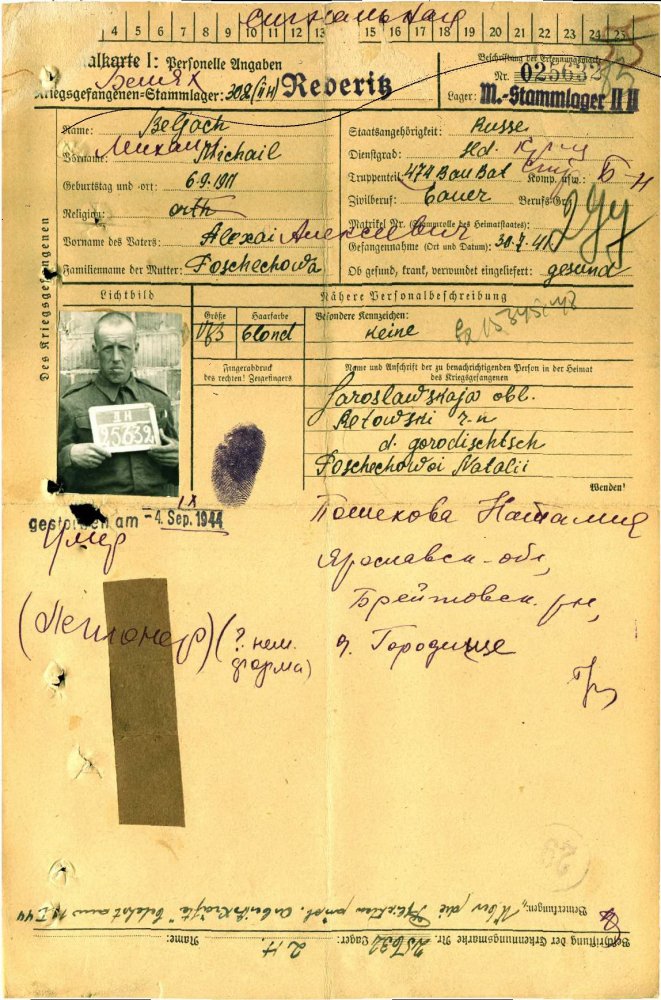 сигнальная
4 5 6 7 8 9 10 11 15 16 17 18 19 20 21 22 23 24 25
alkarte I: Personelle Angaben
Белях
Kriegsgefangenen-Stammlager: 302 (II H) Rederitz
Beschriftung der Erkennungsmarke
Nr. 025632
Lager: M.-Stammlager II H
Des Kriegsgefangenen
Name: Beljach
Vorname: Михаил Michail
Geburtstag und -ort: 6.9.1911
Religion: orth
Vorname des Vaters: Alexai Алексеевич
Familienname der Mutter: Poschechowa
Staatsangehörigkeit: Russe
Dienstgrad: Sd.
Truppenteil: 474 Bau Bat Komp. usw.: Б-н
Zivilberuf: Bauer Berufs-Gr.:
Matrikel Nr. (Stammrolle des Heimatstaates):
Gefangennahme (Ort und Datum): 30.7.41
Ob gesund, krank, verwundet eingeliefert: gesund
Lichtbild
Nähere Personalbeschreibung
Größe Haarfarbe Besondere Kennzeichen:
173 blond Keine
Fingerabdruck
des rechten! Zeigefingers
Name und Anschrift der zu benachrichtigenden Person in der Heimat
des Kriegsgefangenen
Jaroslawskaja obl.
Retowski r-n
d. gorodischtsch
Poschechowoi Natalii
Wenden!
II H
25632
IX
gestorben am -4. Sep. 1944
Умер
Пошехова Наталия
Ярославск. обл,
Брейтовск. рн,
д. Городище
(? нем.
форма)
Bemerkungen:
Beschriftung der Erkennungsmarke Nr. 25632 Lager: II H Name: